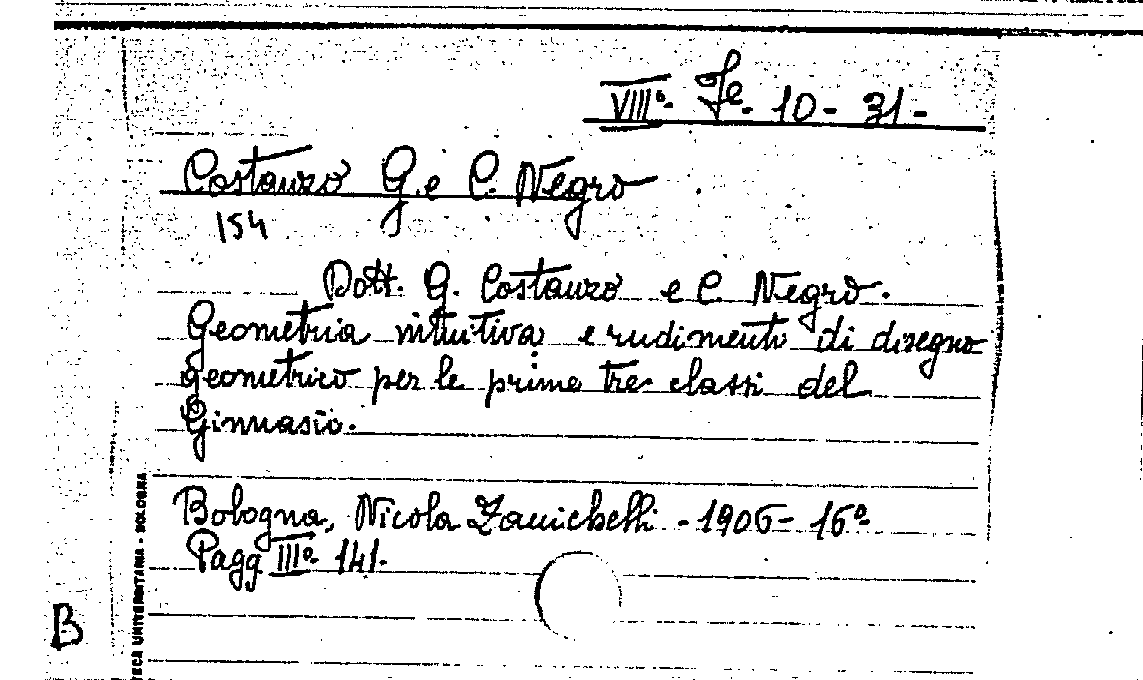 VIIIº. Fe. 10 - 31 -
Costanzo G. e C. Negro
154
Dott. G. Costanzo e C. Negro.
Geometria intuitiva e rudimenti di disegno
geometrico per le prime tre classi del
Ginnasio.
Bologna, Nicola Zanichelli - 1906 - 16º
Pagg IIIº. 141.
B
TECA UNIVERSITARIA - BOLOGNA